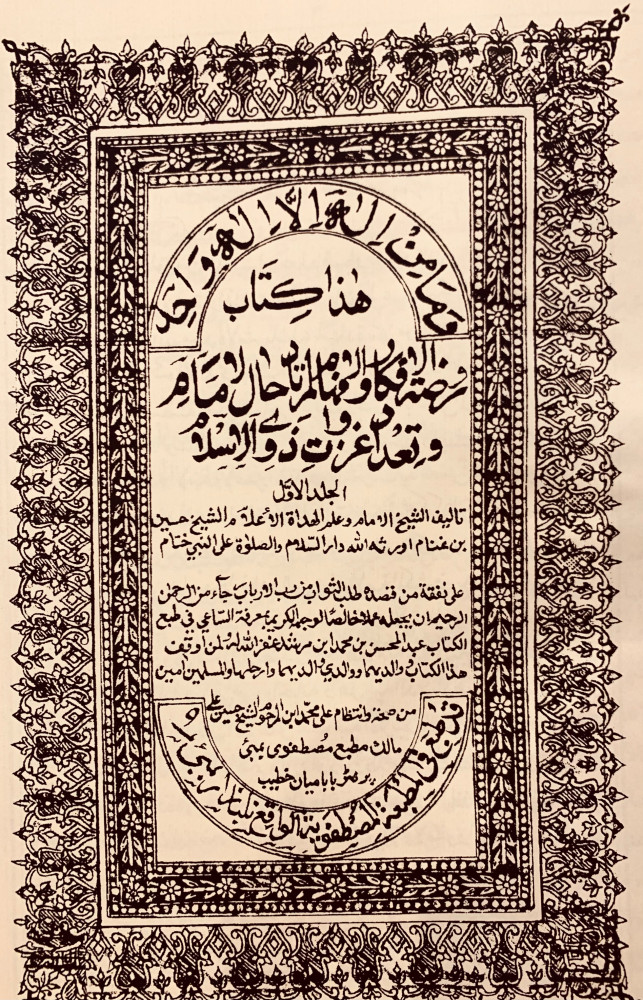 وَمَا مِنْ اِلٰهٍ اِلَّا اِلٰهٌ وَاحِدٌ
هٰذا كِتَاب
روضة الافكار والافهام لمرتاد حال الامام
وتعداد غزوات ذوي الاسلام
الجلد الاوّل
تاليف الشيخ الامام وعلم الهداة الأعلام الشيخ حسين
بن غنام اورثه الله دار السلام والصلوة على النبي ختام
على نفقة من قصده طلب الثواب من رب الارباب جآء من الرحمن
الرحيم ان يجعله عملا خالصًا لوجهه الكريم بمعرفة الساعي في طبع
الكتاب عبد المحسن بن محمد ابن مرشد غفر الله له ولمن اوقف
هذا الكتاب ووالديهما ووالدي والديهما وارحامهما والمسلمين امين
من صمغه وانتظام على محمد ابن المرحوم الشيخ حسين علي
مالك مطبع مُصْطفوى بمبئى
پرنٹر بابا ميان خطيب
قد طبع في المطبعة المصطفوية الواقع بلبندر بمبئ